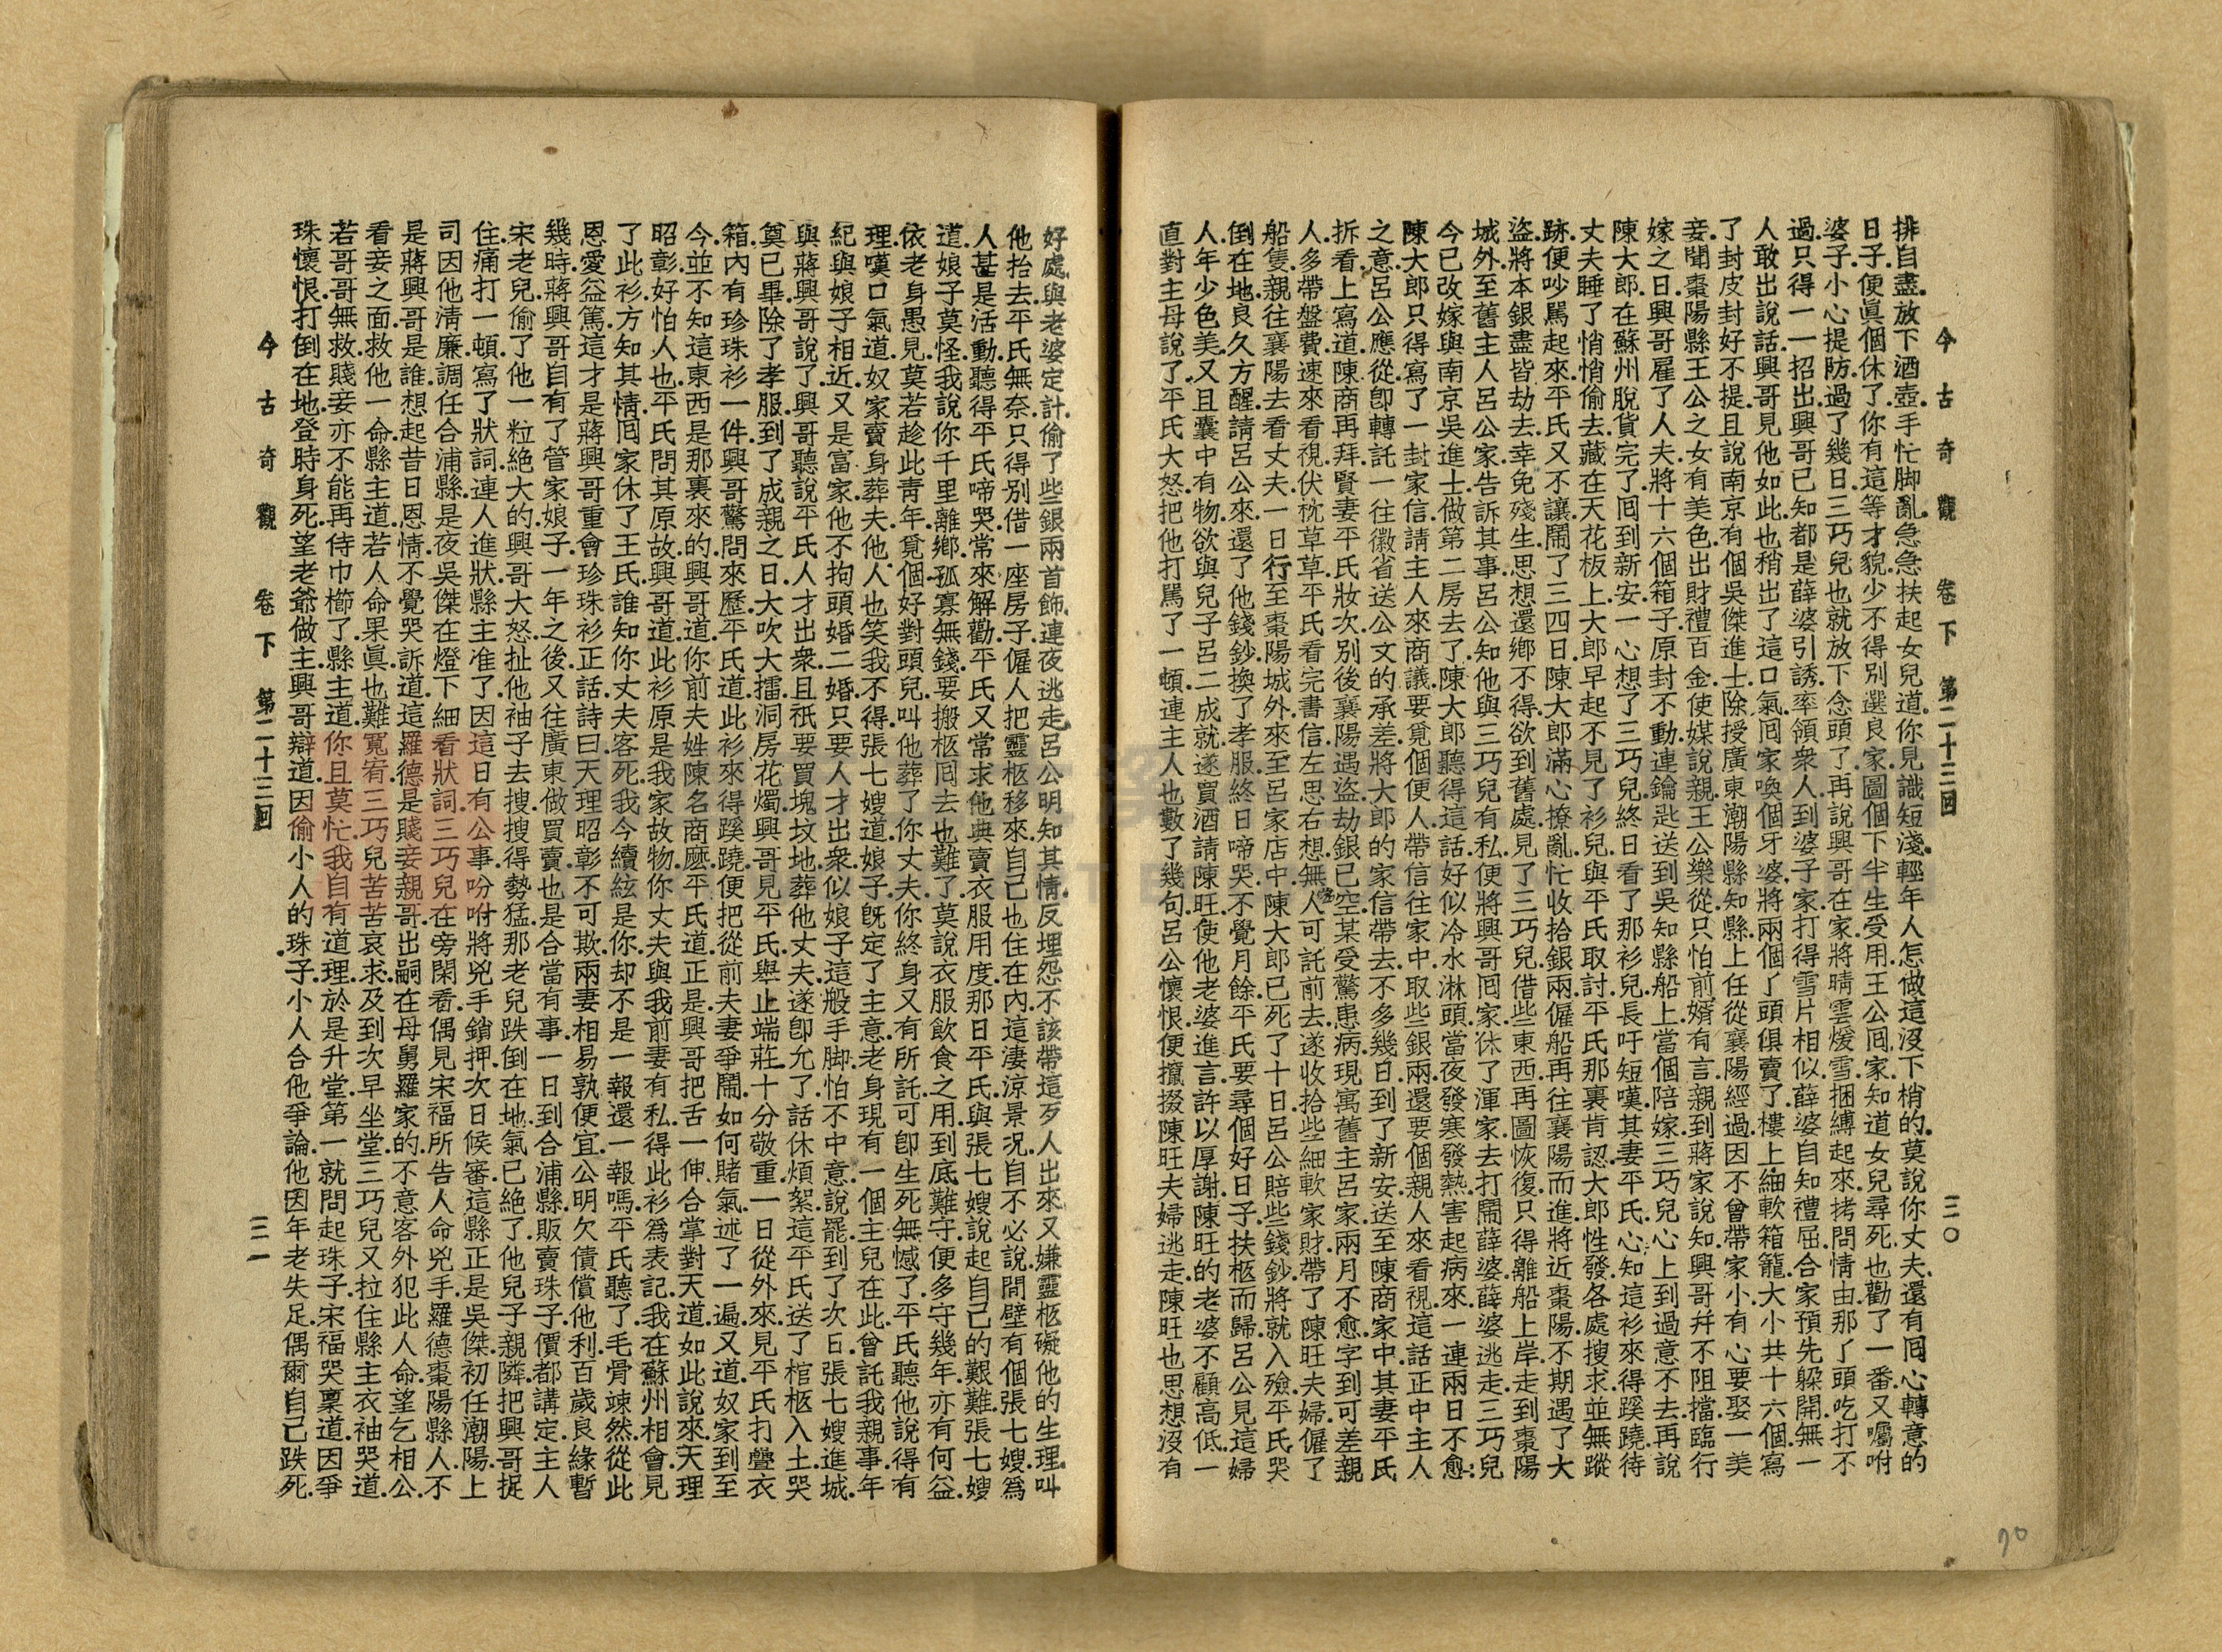 今古奇觀 卷下 第二十三回 三〇
排自盡.放下酒壺.手忙脚亂.急急扶起女兒道.你見識短淺.輕年人.怎做這沒下梢的.莫說你丈夫.還有囘心轉意的
日子.便眞個休了.你有這等才貌.少不得別選良家.圖個下半生受用.王公囘家.知道女兒尋死.也勸了一番.又囑咐
婆子小心提防.過了幾日.三巧兒也就放下念頭了.再說興哥在家.將晴雲煖雪.捆縛起來.拷問情由.那了頭吃打不
過.只得一一招出.興哥已知都是薛婆引誘.率領衆人.到婆子家.打得雪片相似.薛婆自知禮屈.合家預先躱開.無一
人敢出說話.興哥見他如此.也稍出了這口氣.囘家喚個牙婆.將兩個了頭俱賣了.樓上細軟箱籠.大小共十六個.寫
了封皮封好不提.且說南京有個吳傑進士.除授廣東潮陽縣知縣.上任從襄陽經過.因不曾帶家小.有心要娶一美
妾.聞棗陽縣王公之女有美色.出財禮百金.使媒說親.王公樂從.只怕前婿有言.親到蔣家說知.興哥幷不阻擋.臨行
嫁之日.興哥雇了人夫.將十六個箱子.原封不動.連鑰匙送到吳知縣船上.當個陪嫁.三巧兒心上到過意不去.再說
陳大郎在蘇州脫貨完了.囘到新安.一心想了三巧兒.終日看了那衫兒.長吁短嘆.其妻平氏.心知這衫來得蹊蹺.待
丈夫睡了.悄悄偷去.藏在天花板上.大郎早起不見了衫兒.與平氏取討.平氏那裏肯認.大郎性發.各處搜求.並無蹤
跡.便吵罵起來.平氏又不讓.鬧了三四日.陳大郎滿心撩亂.忙收拾銀兩.僱船再往襄陽而進.將近棗陽.不期遇了大
盜.將本銀盡皆劫去.幸免殘生.思想還鄉不得.欲到舊處.見了三巧兒.借些東西.再圖恢復.只得離船上岸.走到棗陽
城外.至舊主人呂公家.告訴其事.呂公知他與三巧兒有私.便將興哥囘家.休了渾家.去打鬧薛婆.薛婆逃走.三巧兒
今已改嫁與南京吳進士做第二房去了.陳大郎聽得這話.好似冷水淋頭.當夜發寒發熱.害起病來.一連兩日不愈.
陳大郎只得寫了一封家信.請主人來商議.要覓個便人帶信往家中.取些銀兩.還要個親人來看視.這話正中主人
之意.呂公應從.卽轉託一往徽省送公文的承差.將大郎的家信帶去.不多幾日.到了新安.送至陳商家中.其妻平氏
拆看.上寫道.陳商再拜.賢妻平氏妝次.別後襄陽遇盜.劫銀已空.某受驚患病.現寓舊主呂家.兩月不愈.字到可差親
人.多帶盤費.速來看視.伏枕草草.平氏看完書信.左思右想.無人可託前去.遂收拾些細軟家財.帶了陳旺夫婦.僱了
船隻.親往襄陽.去看丈夫.一日行至棗陽城外.來至呂家店中.陳大郎已死了十日.呂公賠些錢鈔.將就入殮.平氏哭
倒在地.良久方醒.請呂公來.還了他錢鈔.換了孝服.終日啼哭.不覺月餘.平氏要尋個好日子.扶柩而歸.呂公見這婦
人.年少色美.又且囊中有物.欲與兒子呂二成就.遂買酒請陳旺.使他老婆進言.許以厚謝.陳旺的老婆.不顧高低.一
直對主母說了.平氏大怒.把他打罵了一頓.連主人也數了幾句.呂公懷恨.便攛掇陳旺夫婦逃走.陳旺也思想沒有
好處.與老婆定計.偷了些銀兩首飾.連夜逃走.呂公明知其情.反埋怨不該帶這歹人出來.又嫌靈柩礙他的生理.叫
他抬去.平氏無奈.只得別借一座房子.僱人把靈柩移來.自己也住在內.這淒涼景況.自不必說.間壁有個張七嫂.爲
人甚是活動.聽得平氏啼哭.常來解勸.平氏又常求他典賣衣服用度.那日平氏與張七嫂說起自己的艱難.張七嫂
道.娘子莫怪我說.你千里離鄉.孤寡無錢.要搬柩囘去也難了.莫說衣服飲食之用.到底難守.便多守幾年.亦有何益.
依老身愚見.莫若趁此靑年.覓個好對頭兒.叫他葬了你丈夫.你終身又有所託.可卽生死無憾了.平氏聽他說得有
理.嘆口氣道.奴家賣身葬夫.他人也笑我不得.張七嫂道.娘子旣定了主意.老身現有一個主兒在此.曾託我親事.年
紀與娘子相近.又是富家.他不拘頭婚二婚.只要人才出衆.似娘子這般手脚.怕不中意.說罷.到了次日.張七嫂進城.
與蔣興哥說了.興哥聽說平氏人才出衆.且祇要買塊墳地.葬他丈夫.遂卽允了.話休煩絮.這平氏送了棺柩入土.哭
奠已畢.除了孝服.到了成親之日.大吹大擂.洞房花燭.興哥見平氏舉止端莊.十分敬重.一日從外來.見平氏打疊衣
箱.內有珍珠衫一件.興哥驚問來歷.平氏道.此衫來得蹊蹺.便把從前夫妻爭鬧.如何賭氣.述了一遍.又道.奴家到至
今.並不知這東西是那裏來的.興哥道.你前夫姓陳名商麽.平氏道.正是.興哥把舌一伸.合掌對天道.如此說來.天理
昭彰.好怕人也.平氏問其原故.興哥道.此衫原是我家故物.你丈夫與我前妻有私.得此衫爲表記.我在蘇州相會.見
了此衫.方知其情.囘家休了王氏.誰知你丈夫客死.我今續絃是你.却不是一報還一報嗎.平氏聽了毛骨竦然.從此
恩愛益篤.這才是蔣興哥重會珍珠衫正話.詩曰.天理昭彰不可欺.兩妻相易孰便宜.公明欠債償他利.百歲良緣暫
幾時.蔣興哥自有了管家娘子.一年之後.又往廣東做買賣.也是合當有事.一日到合浦縣.販賣珠子.價都講定.主人
宋老兒.偷了他一粒絕大的.興哥大怒.扯他袖子去搜.搜得勢猛.那老兒跌倒在地.氣已絕了.他兒子親隣.把興哥捉
住.痛打一頓.寫了狀詞.連人進狀.縣主准了.因這日有公事.吩咐將兇手鎖押.次日候審.這縣正是吳傑.初任潮陽上
司因他淸廉.調任合浦縣.是夜吳傑在燈下細看狀詞.三巧兒在旁閑看.偶見宋福所告人命兇手.羅德棗陽縣人.不
是蔣興哥是誰.想起昔日恩情.不覺哭訴道.這羅德是賤妾親哥.出嗣在母舅羅家的.不意客外犯此人命.望乞相公.
看妾之面.救他一命.縣主道.若人命果眞.也難寬宥.三巧兒苦苦哀求.及到次早坐堂.三巧兒又拉住縣主衣袖哭道.
若哥哥無救.賤妾亦不能再侍巾櫛了.縣主道.你且莫忙.我自有道理.於是升堂.第一就問起珠子.宋福哭稟道.因爭
珠懷恨.打倒在地.登時身死.望老爺做主.興哥辯道.因偷小人的珠子.小人合他爭論.他因年老失足.偶爾自己跌死.
今古奇觀 卷下 第二十三回 三一
70